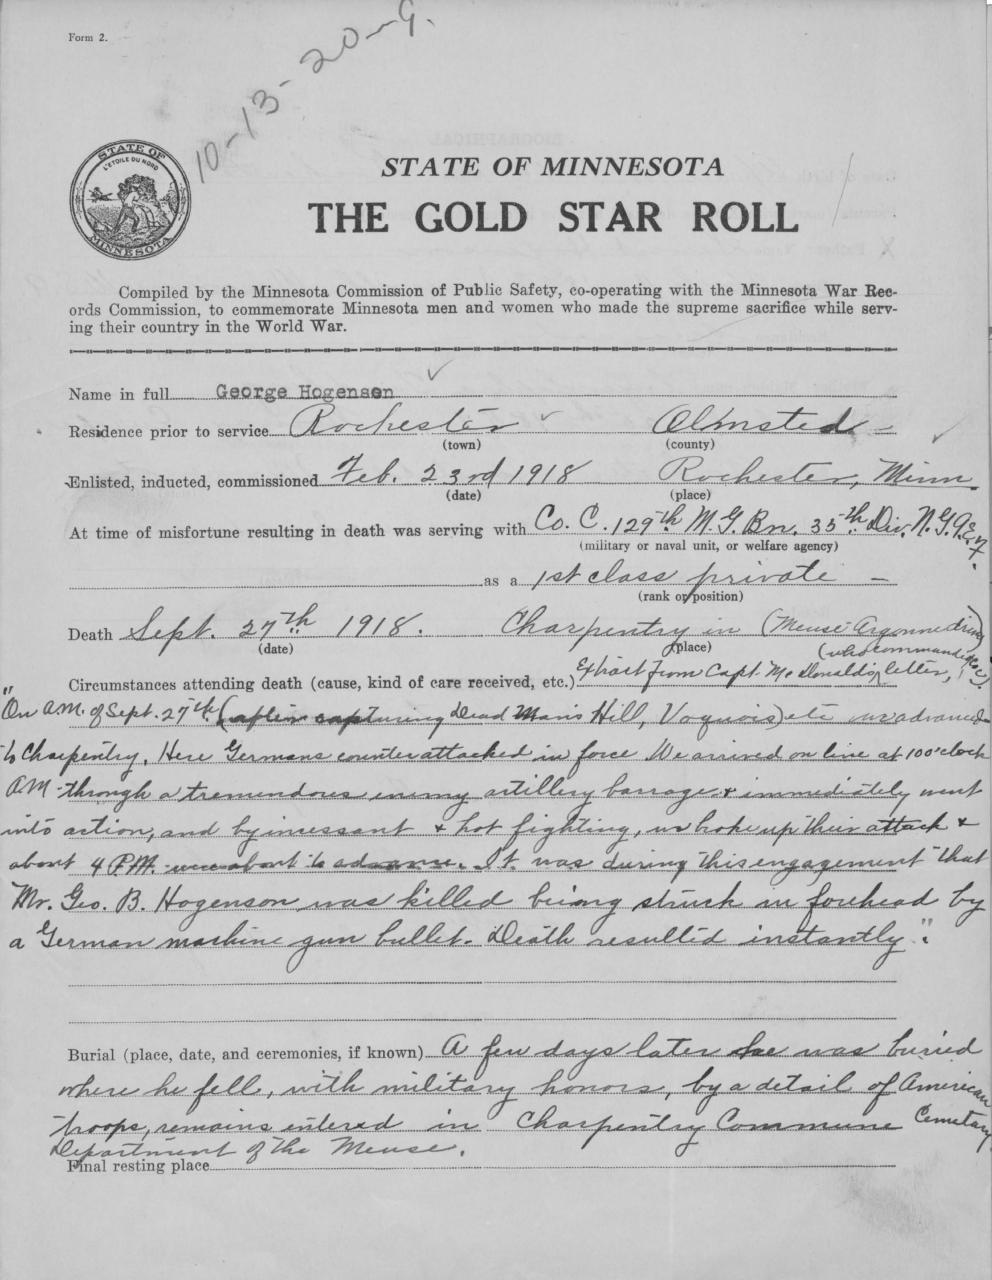 Form 2.
10-13-20-G.
STATE OF
L'ETOILE DU NORD
MINNESOTA
STATE OF MINNESOTA
THE GOLD STAR ROLL
Compiled by the Minnesota Commission of Public Safety, co-operating with the Minnesota War Rec-
ords Commission, to commemorate Minnesota men and women who made the supreme sacrifice while serv-
ing their country in the World War.
Name in full George Hogenson
Residence prior to service Rochester Olmsted
(town) (county)
Enlisted, inducted, commissioned Feb. 23rd 1918 Rochester, Minn.
(date) (place)
At time of misfortune resulting in death was serving with Co. C. 129th M.G. Bn. 35th Div. N.G. A.E.F.
(military or naval unit, or welfare agency)
as a 1st class private
(rank or position)
Death Sept. 27th 1918. Charpentry in (Meuse Argonne drive)
(date) (place)
(who commanded Co C)
Circumstances attending death (cause, kind of care received, etc.) Extract from Capt. McDonald's letter,
"On A.M. of Sept. 27th (after capturing Dead Man's Hill, Vaquois) etc we advanced
to Charpentry. Here Germans counter attacked in force We arrived on line at 10 o'clock
A.M. through a tremendous enemy artillery barrage & immediately went
into action, and by incessant & hot fighting, we broke up their attack &
about 4 P.M. were about to advance. It was during this engagement that
Mr. Geo. B. Hogenson was killed being struck in forehead by
a German machine gun bullet. Death resulted instantly".
Burial (place, date, and ceremonies, if known) A few days later he was buried
where he fell, with military honors, by a detail of American
troops, remains intered in Charpentry Commune Cemetary
Department of the Meuse.
Final resting place